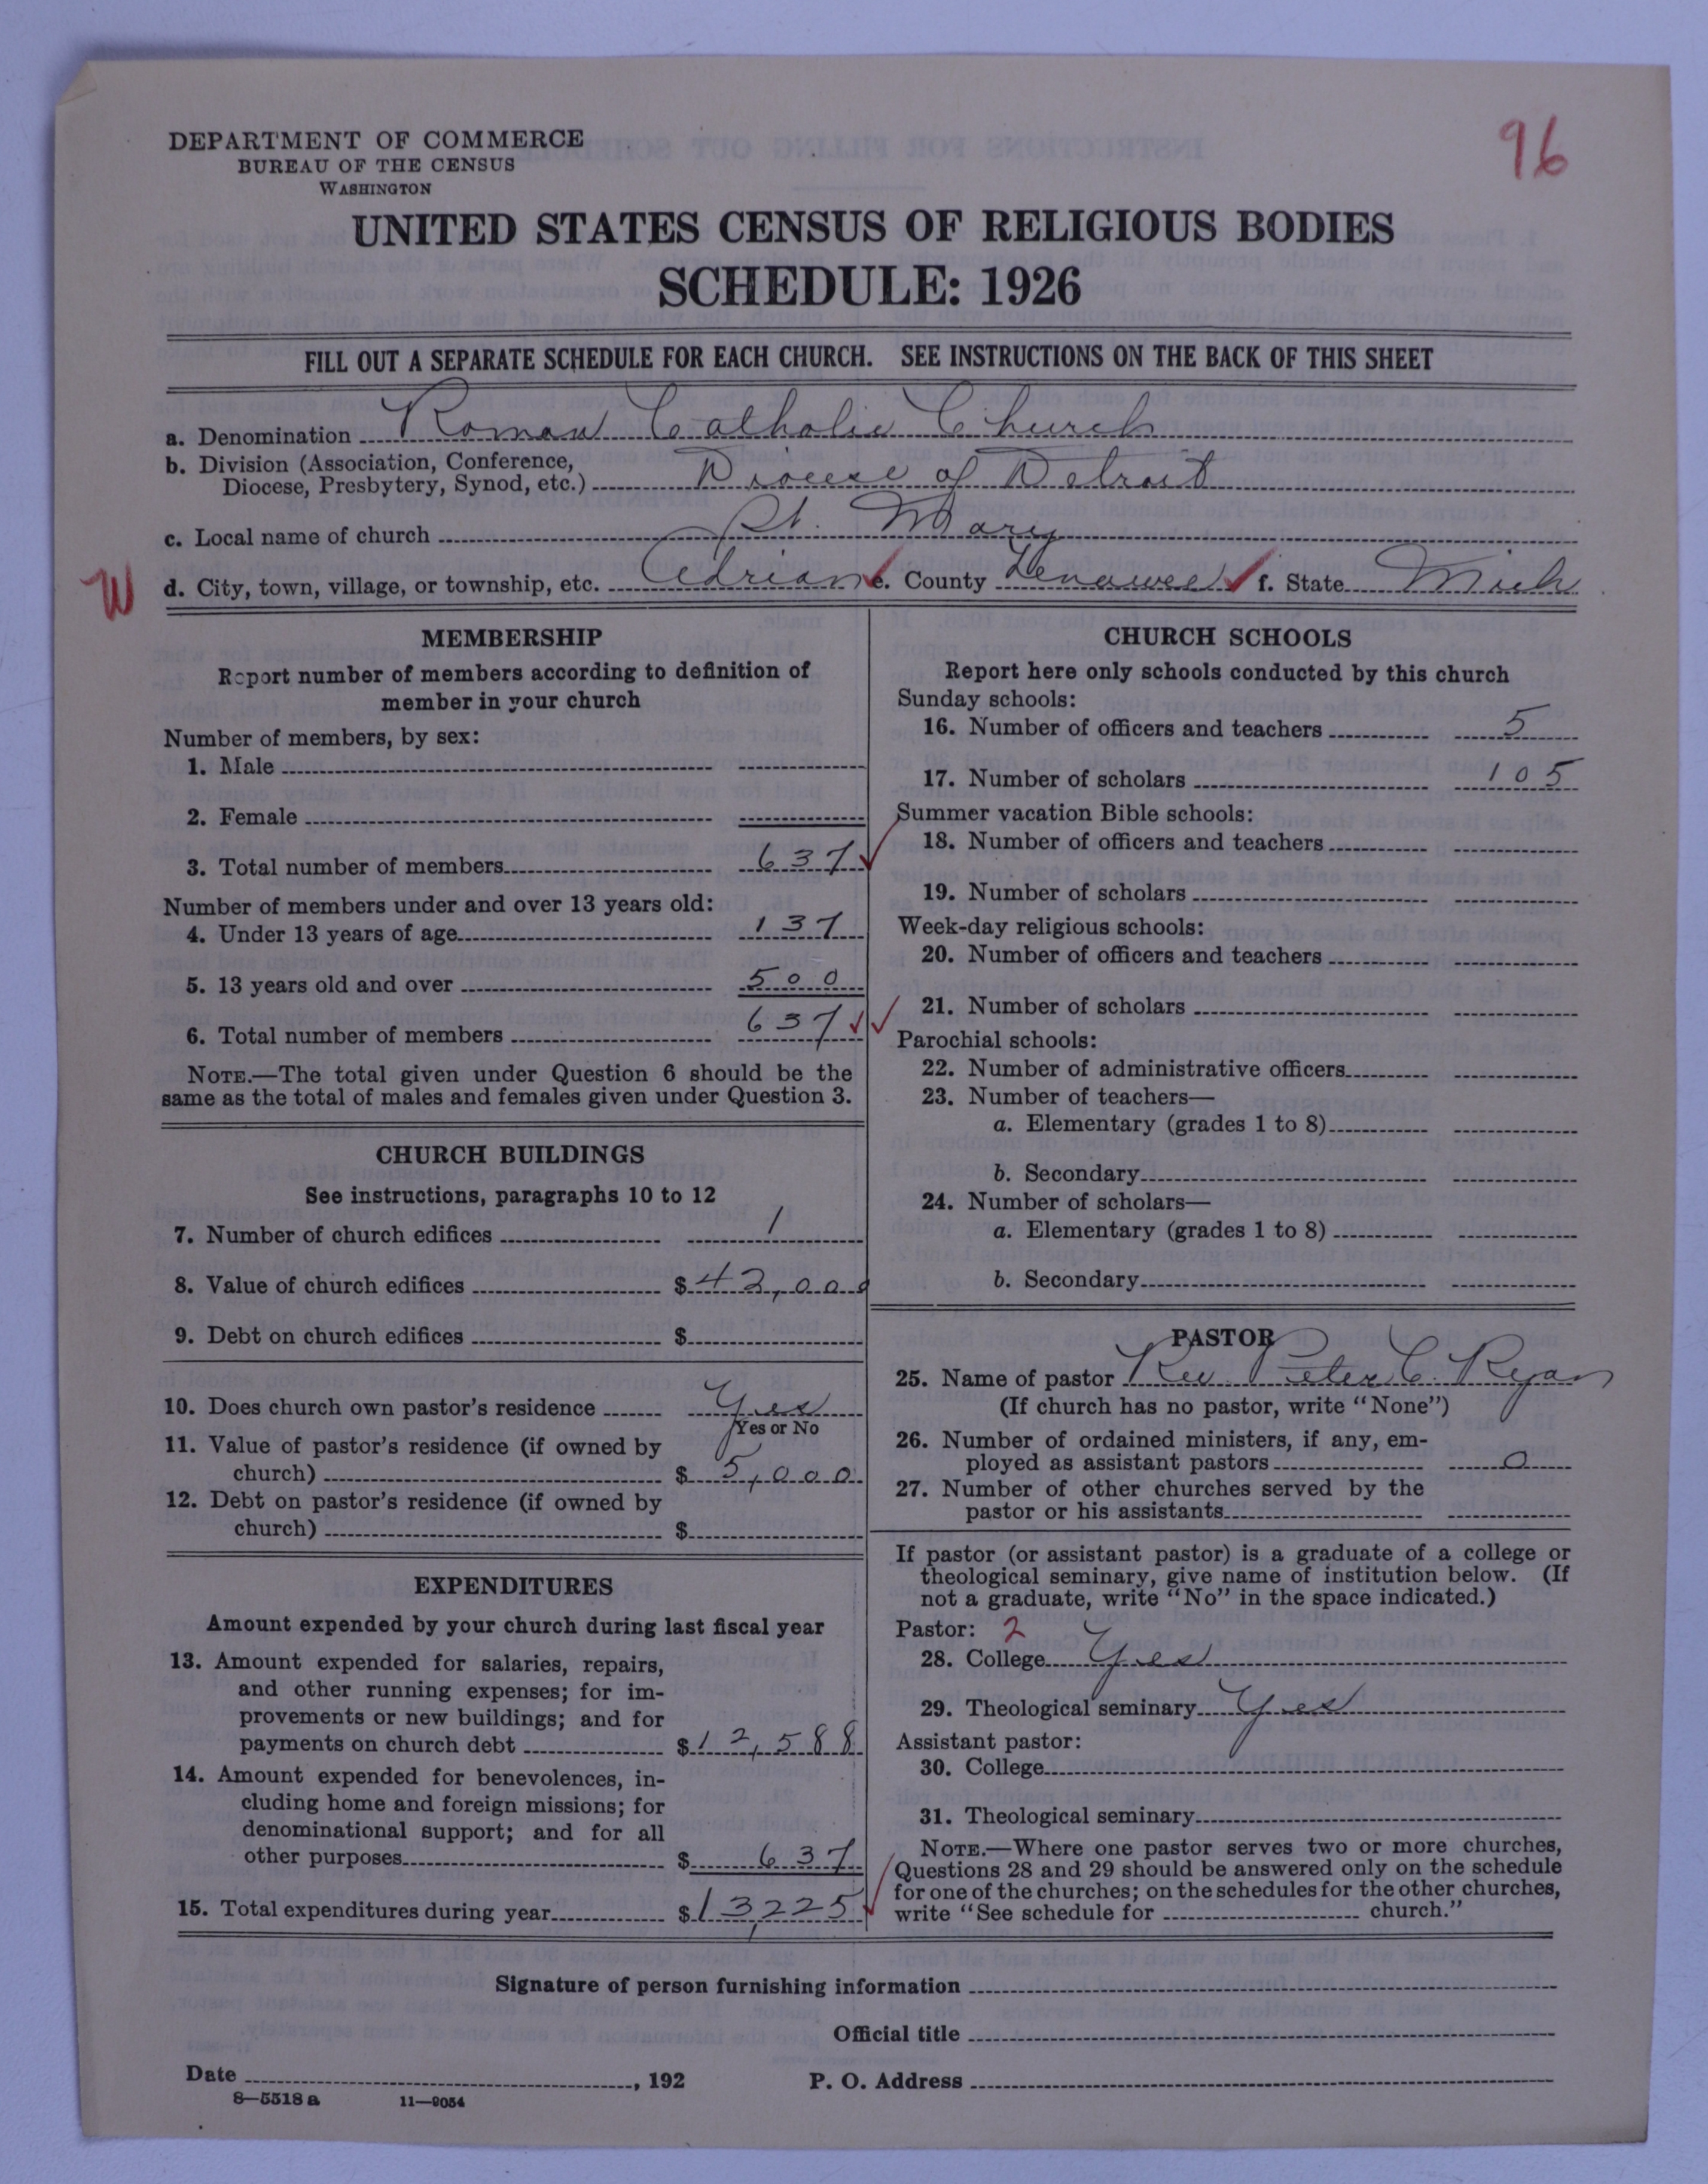 DEPARTMENT OF COMMERCE
BUREAU OF THE CENSUS
WASHINGTON
96
UNITED STATES CENSUS OF RELIGIOUS BODIES
SCHEDULE: 1926
FILL OUT A SEPARATE SCHEDULE FOR EACH CHURCH. SEE INSTRUCTIONS ON THE BACK OF THIS SHEET
a. Denomination Roman Catholic Church
b. Division (Association, Conference,
Diocese, Presbytery, Synod, etc.) Diocese of Detroit
c. Local name of church St. Mary
W d. City, town, village, or township, etc. Adrian e. County Lenawee f. State Mich
MEMBERSHIP
Report number of members according to definition of
member in your church
Number of members, by sex:
1. Male
2. Female
3. Total number of members 637
Number of members under and over 13 years old:
4. Under 13 years of age 137
5. 13 years old and over 500
6. Total number of members 637
NOTE.—The total given under Question 6 should be the
same as the total of males and females given under Question 3.
CHURCH BUILDINGS
See instructions, paragraphs 10 to 12
7. Number of church edifices 1
8. Value of church edifices $42,000
9. Debt on church edifices $
10. Does church own pastor's residence Yes
Yes or No
11. Value of pastor's residence (if owned by
church) $ 5,000
12. Debt on pastor's residence (if owned by
church) $
EXPENDITURES
Amount expended by your church during last fiscal year
13. Amount expended for salaries, repairs,
and other running expenses; for im-
provements or new buildings; and for
payments on church debt $12,588
14. Amount expended for benevolences, in-
cluding home and foreign missions; for
denominational support; and for all
other purposes $ 637
15. Total expenditures during year $13,225
CHURCH SCHOOLS
Report here only schools conducted by this church
Sunday schools:
16. Number of officers and teachers 5
17. Number of scholars 105
Summer vacation Bible schools:
18. Number of officers and teachers
19. Number of scholars
Week-day religious schools:
20. Number of officers and teachers
21. Number of scholars
Parochial schools:
22. Number of administrative officers
23. Number of teachers—
a. Elementary (grades 1 to 8)
b. Secondary
24. Number of scholars—
a. Elementary (grades 1 to 8)
b. Secondary
PASTOR
25. Name of pastor Rev. Peter C. Ryan
(If church has no pastor, write "None")
26. Number of ordained ministers, if any, em-
ployed as assistant pastors 0
27. Number of other churches served by the
pastor or his assistants
If pastor (or assistant pastor) is a graduate of a college or
theological seminary, give name of institution below. (If
not a graduate, write "No" in the space indicated.)
Pastor: 2
28. College Yes
29. Theological seminary Yes
Assistant pastor:
30. College
31. Theological seminary
NOTE.—Where one pastor serves two or more churches,
Questions 28 and 29 should be answered only on the schedule
for one of the churches; on the schedules for the other churches,
write "See schedule for church."
Signature of person furnishing information
Official title
Date , 192 P. O. Address
8—5518 a 11—9054